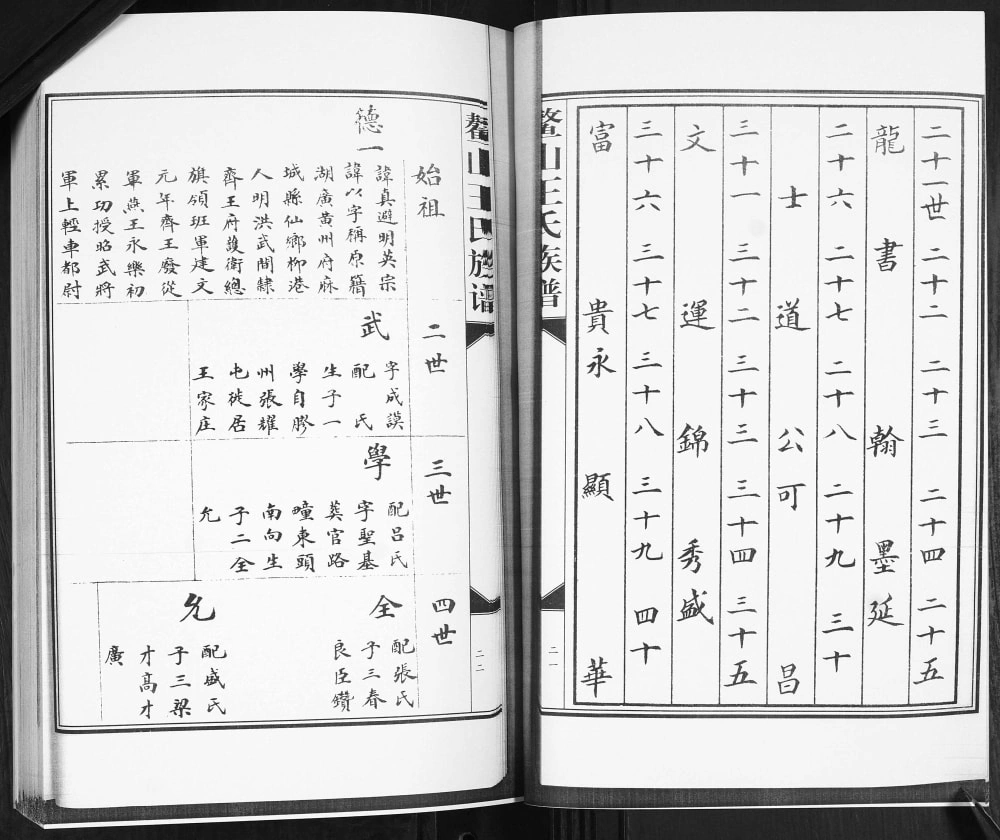 二十一世 二十二 二十三 二十四 二十五
龍 書 翰 墨 延
二十六 二十七 二十八 二十九 三十
士 道 公 可 昌
三十一 三十二 三十三 三十四 三十五
文 運 錦 秀 盛
三十六 三十七 三十八 三十九 四十
富 貴 永 顯 華
鳌山王氏族谱
二一
鳌山王氏族谱
二二
始祖
德一
諱真避明英宗
諱以字稱原籍
湖廣黄州府麻
城縣仙鄉柳港
人明洪武間隸
齊王府護衛總
旗領班軍建文
元年齊王廢從
軍燕王永樂初
累功授昭武將
軍上輕車都尉
二世
武
字成謨
配 氏
生子一
學自膠
州張耀
屯徙居
王家庄
三世
學
配吕氏
字聖基
葬官路
疃東頭
南向生
子二全
允
四世
全
配張氏
子三春
良臣鑽
允
配盛氏
子三梁
才高才
廣